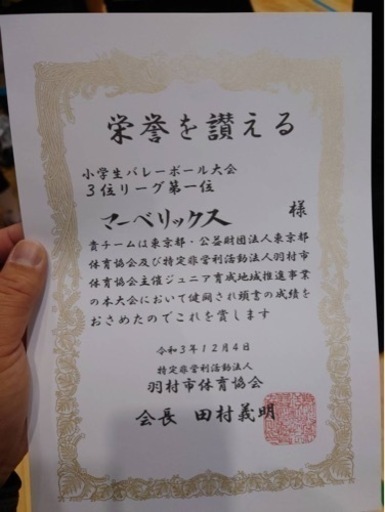 栄誉を讃える
小学生バレーボール大会
3位リーグ第一位
マーベリックス 様
貴チームは東京都・公益財団法人東京都
体育協会及び特定非営利活動法人羽村市
体育協会主催ジュニア育成地域推進事業
の本大会において健闘され頭書の成績を
おさめたのでこれを賞します
令和3年12月4日
特定非営利活動法人
羽村市体育協会
会長 田村義明